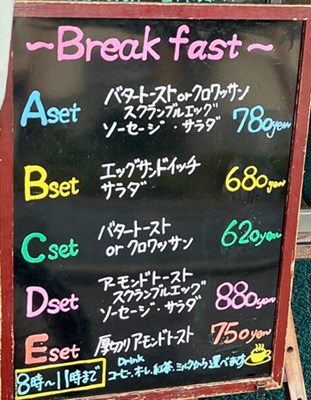 ~Breakfast~
Aset バタートーストorクロワッサン
スクランブルエッグ
ソーセージ・サラダ 780yen
Bset エッグサンドイッチ
サラダ 680yen
Cset バタートースト
orクロワッサン 620yen
Dset アーモンドトースト
スクランブルエッグ
ソーセージ・サラダ 880yen
Eset 厚切りアモンドトースト 750yen
8時〜11時まで
Drink
コーヒー、オレ、紅茶、ミルクから選べます